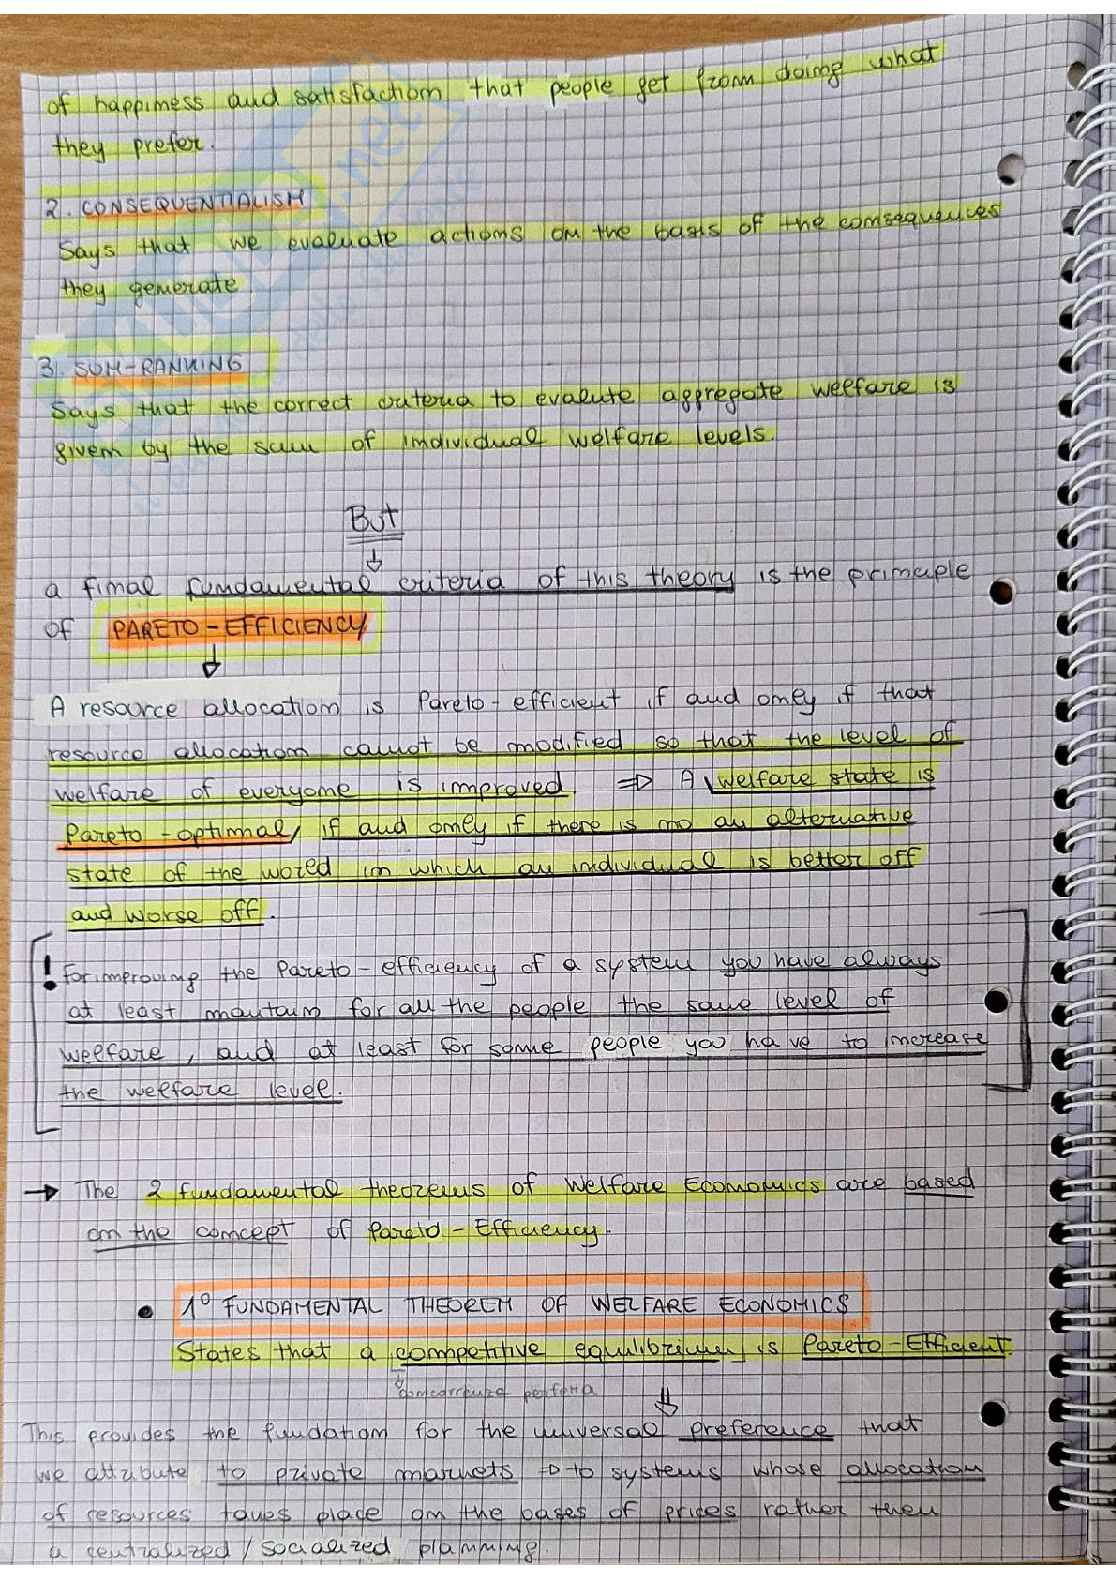 of happiness and satisfaction that people get from doing what
they prefer.
2. CONSEQUENTIALISM
Says that we evaluate actions on the basis of the consequences
they generate
3. SUM-RANKING
Says that the correct criteria to evalute aggregate welfare is
given by the sum of individual welfare levels.
But
a final fundamental criteria of this theory is the principle
of PARETO-EFFICIENCY
A resource allocation is Pareto-efficient if and only if that
resource allocation cannot be modified so that the level of
welfare of everyone is improved ⇒ A welfare state is
Pareto-optimal, if and only if there is no an alternative
state of the world in which an individual is better off
and worse off.
! For improving the Pareto-efficiency of a system you have always
at least mantain for all the people the same level of
welfare, and at least for some people you have to increase
the welfare level.
→ The 2 fundamental theorems of Welfare Economics are based
on the concept of Pareto-Efficiency.
• 1° FUNDAMENTAL THEOREM OF WELFARE ECONOMICS
States that a competitive equilibrium is Pareto-Efficient.
concorrenza perfetta
This provides the fundation for the universal preference that
we attribute to private markets ⇒ to systems whose allocation
of resources takes place on the bases of prices rather then
a centralized/socialized planning.